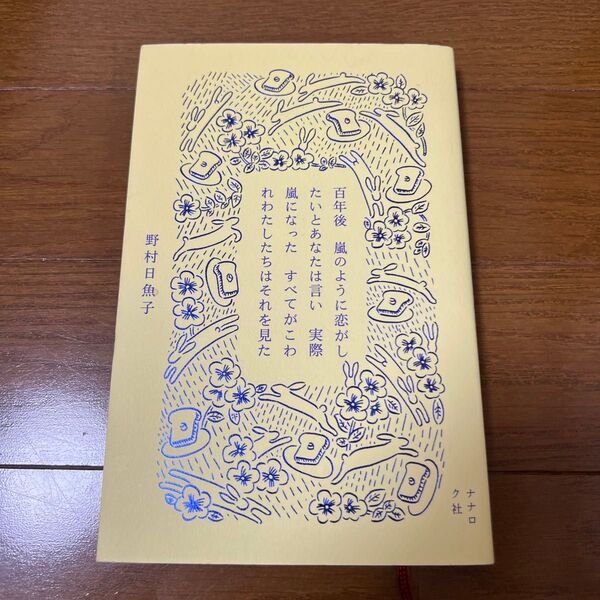 百年後　嵐のように恋がし
たいとあなたは言い　実際
嵐になった　すべてがこわ
れわたしたちはそれを見た
野村日魚子
ナナロ
ク社